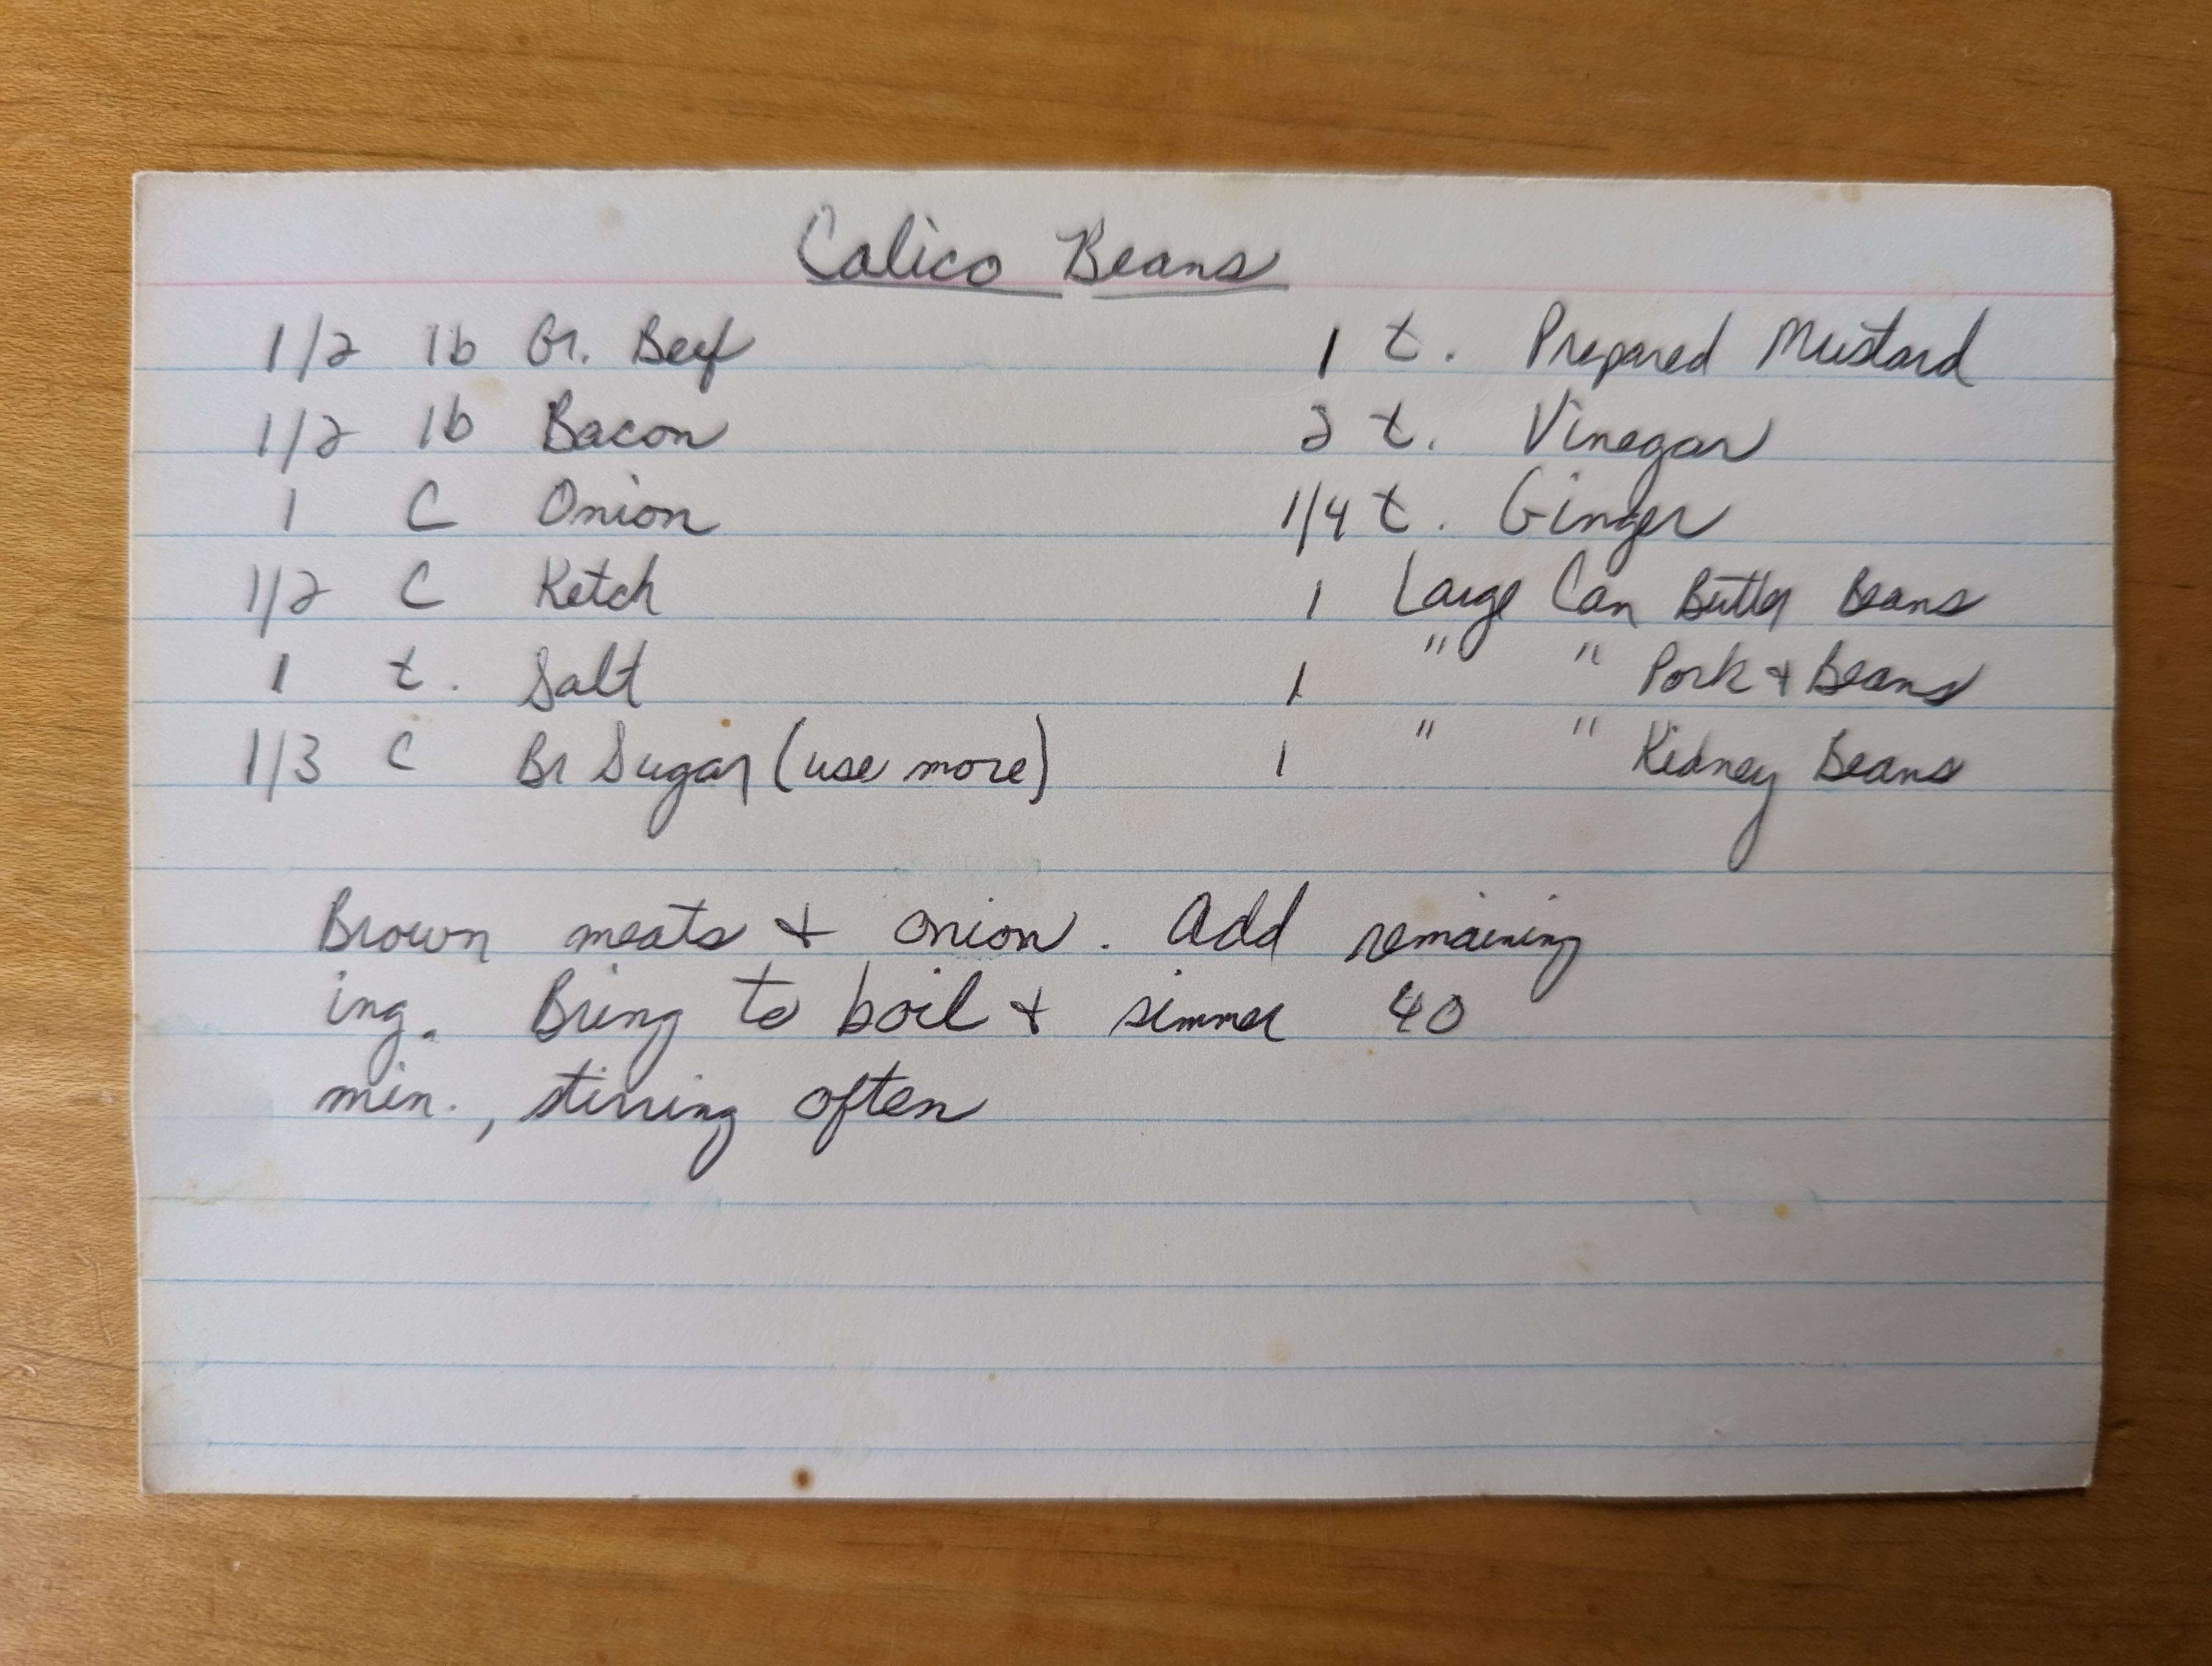 Calico Beans
1/2 lb Gr. Beef
1/2 lb Bacon
1 C Onion
1/2 C Ketch
1 t. Salt
1/3 C Br Sugar (use more)
1 t. Prepared Mustard
2 t. Vinegar
1/4 t. Ginger
1 Large Can Butter Beans
1 " " Pork + Beans
1 " " Kidney Beans
Brown meats + onion. Add remaining
ing. Bring to boil + simmer 40
min., stirring often